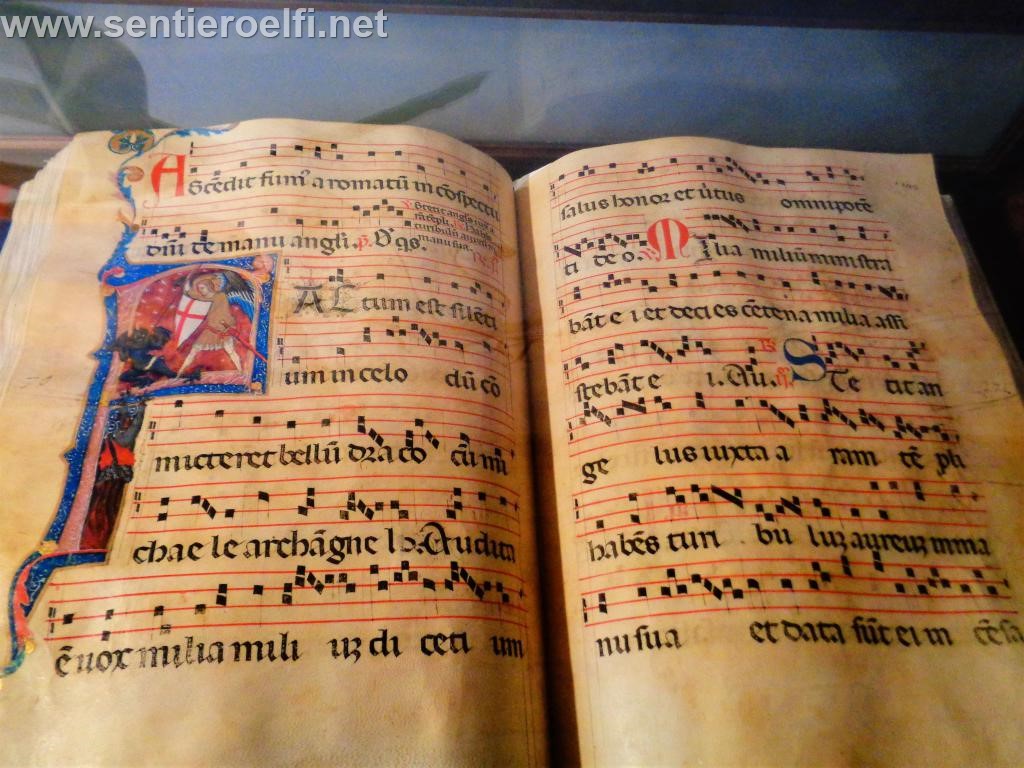 www.sentieroelfi.net
Ascēdit fum⁹ aromatū in cōspectu
dñi de manu angli. p. D. qs.
FACtum est silenti
um in celo dū cō
mitteret bellū draco cū mi
chaele archāgnelo. Audita
ē uox milia mili uꝝ di ceti um
salus honor et u̓tus omnipotē
ti deo. Milia miliū ministra
bāt ei et decies cētena milia assi
stebāt e i. Dū. Ste tit an
ge lus iuxta a ram tē pli
habēs turi bu luꝝ aureuꝝ in ma
nu sua et data sūt ei in cēsa